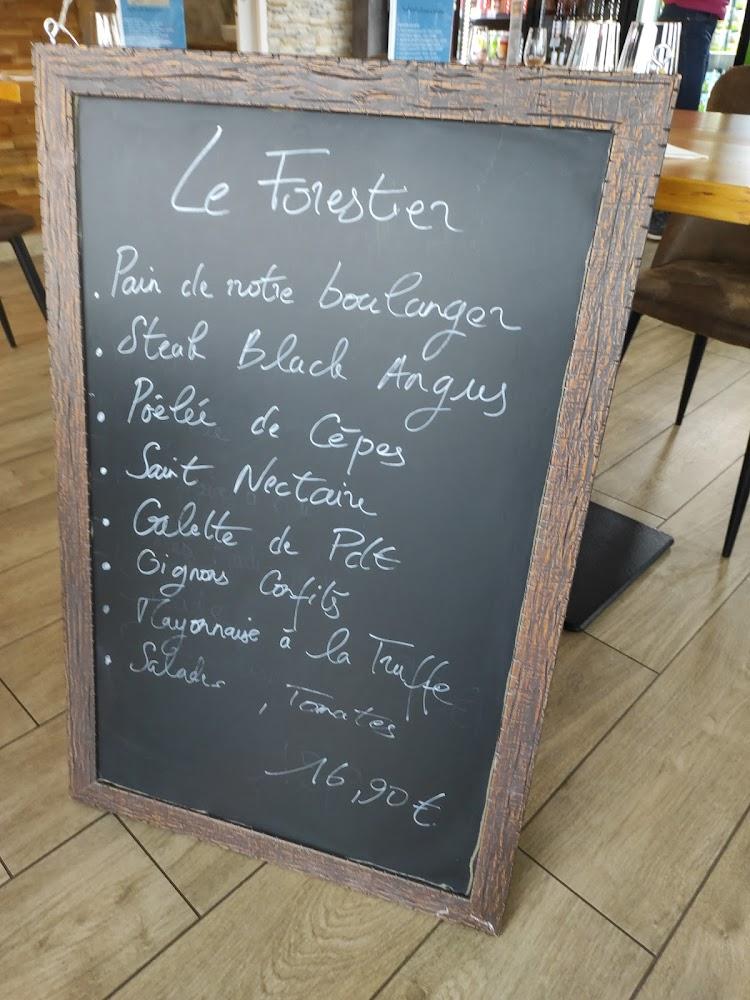 Le Forestier
. Pain de notre boulanger
. Steak Black Angus
. Poêlée de Cèpes
. Saint Nectaire
. Galette de Pdt
. Oignons Confits
. Mayonnaise à la Truffe
. Salade, Tomates
16,90 €